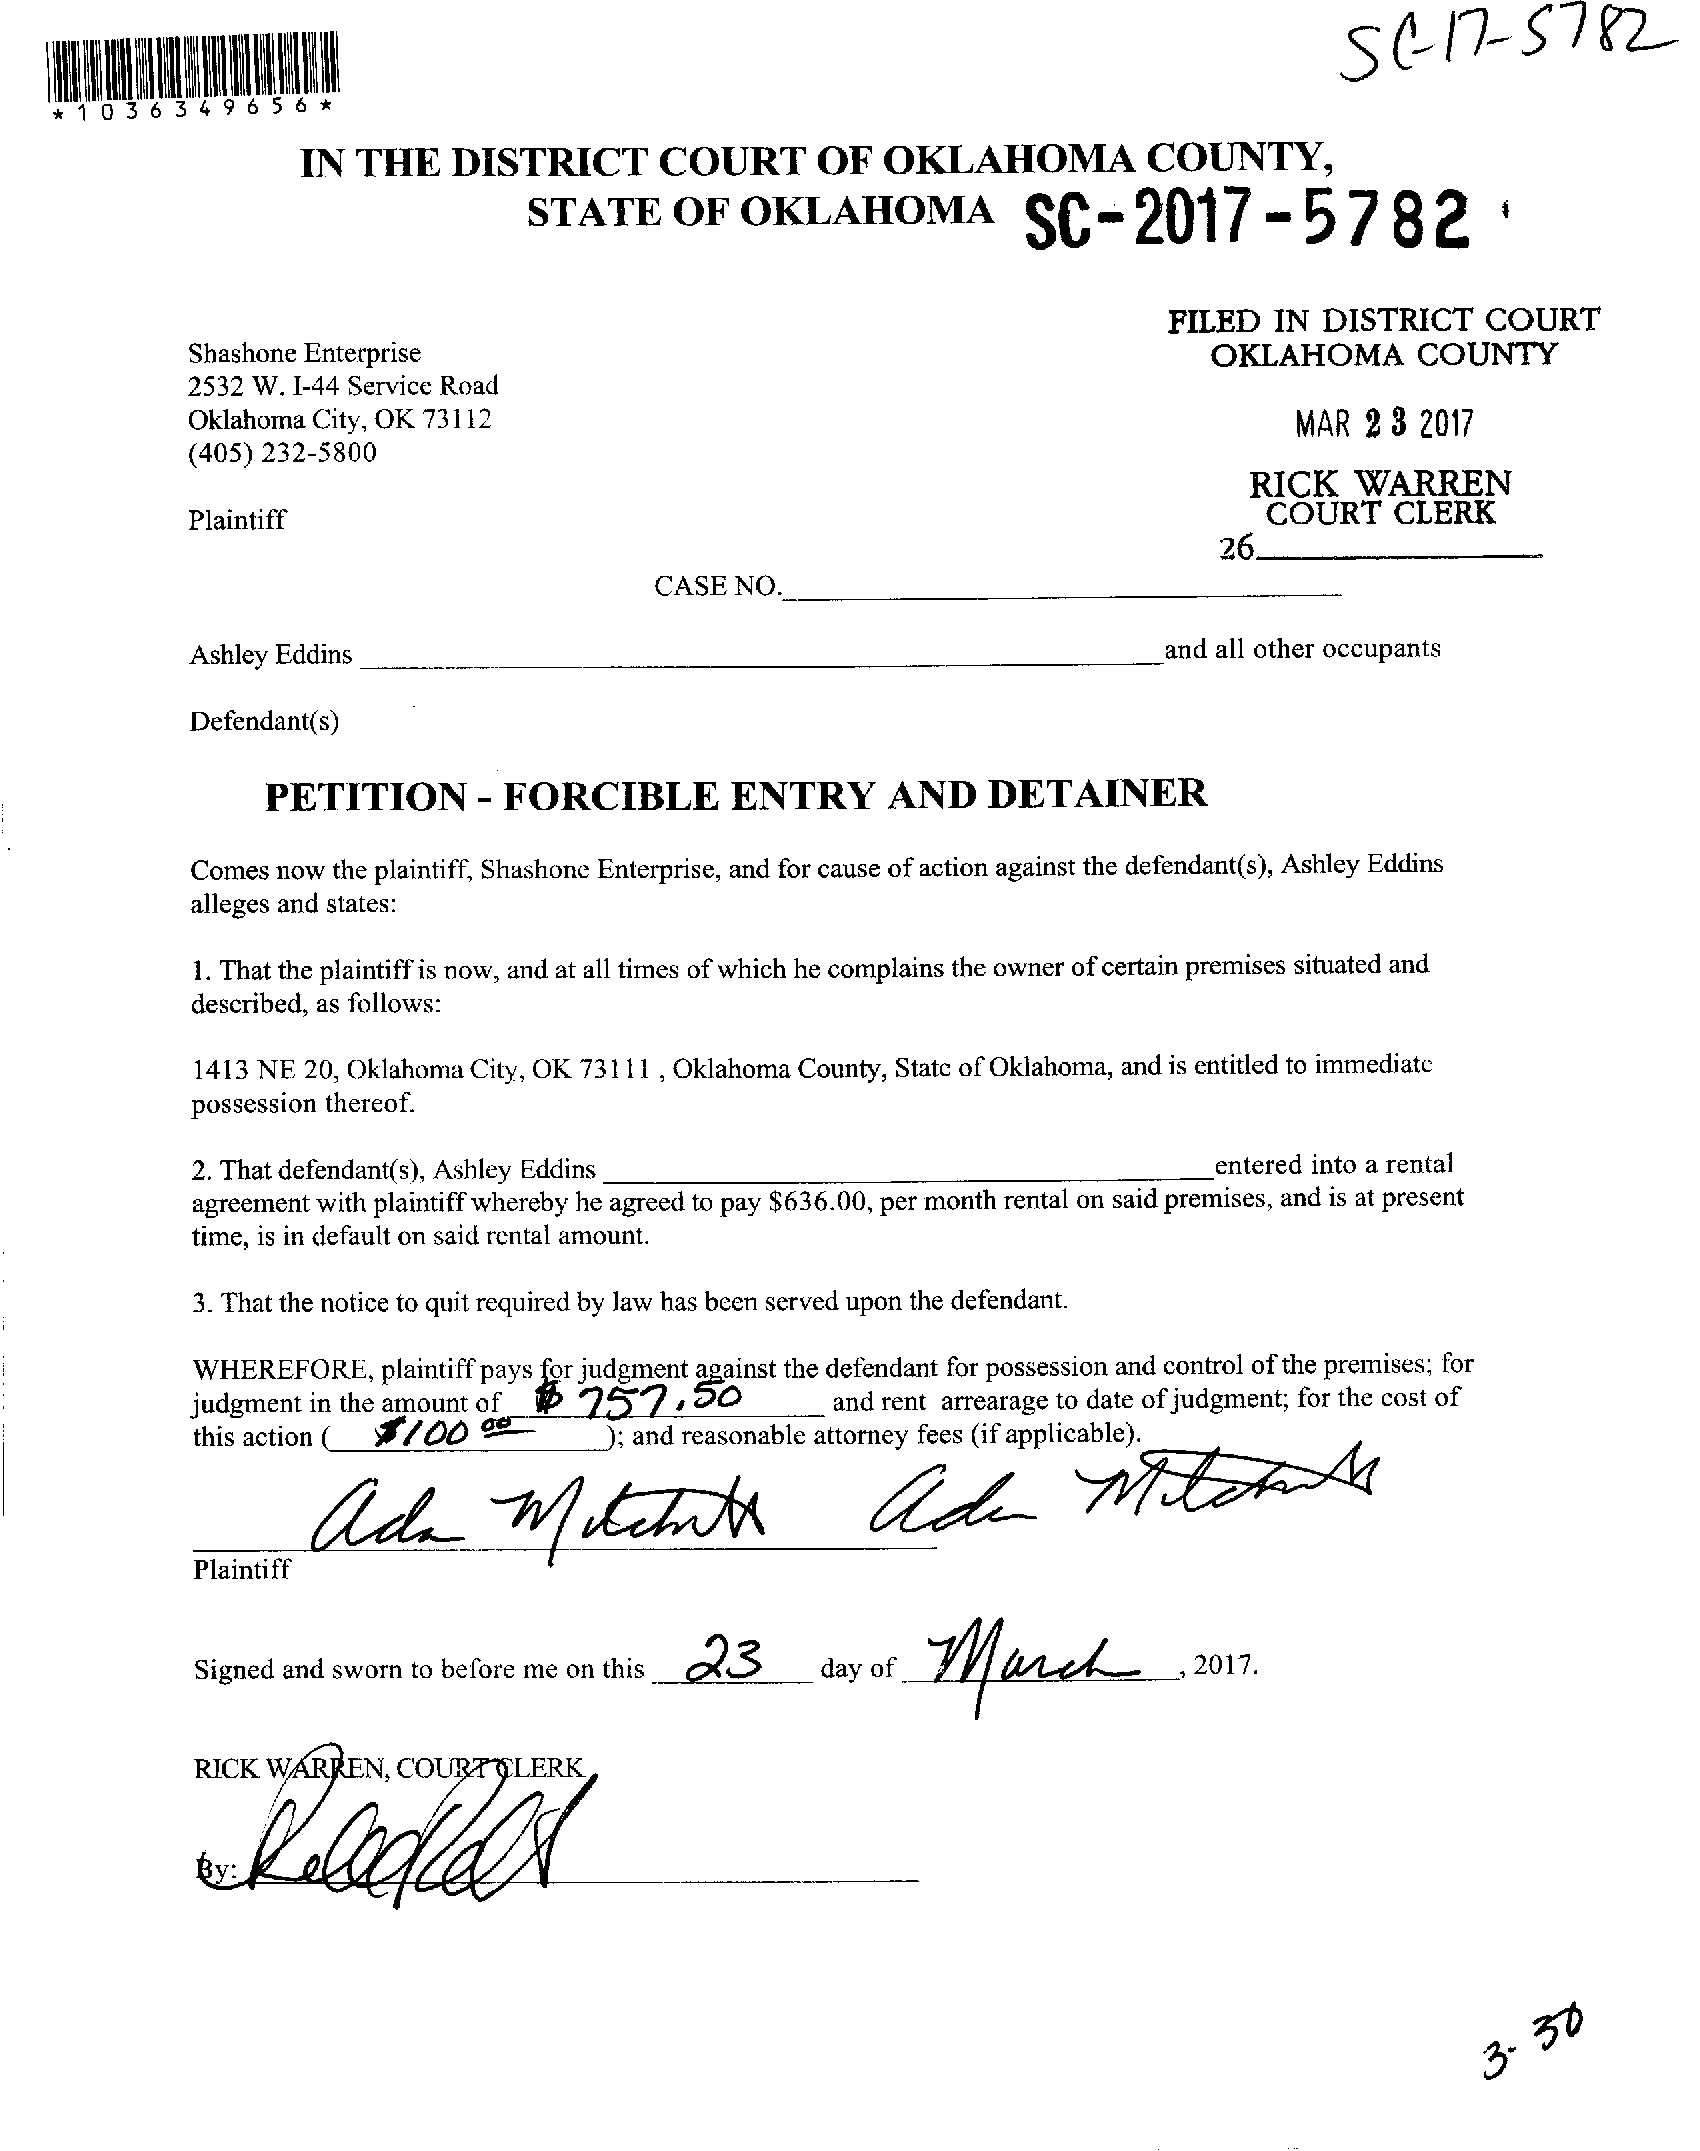 SC-17-5782
*1036349656*
IN THE DISTRICT COURT OF OKLAHOMA COUNTY,
STATE OF OKLAHOMA SC-2017-5782
FILED IN DISTRICT COURT
OKLAHOMA COUNTY
MAR 23 2017
RICK WARREN
COURT CLERK
26
Shashone Enterprise
2532 W. I-44 Service Road
Oklahoma City, OK 73112
(405) 232-5800
Plaintiff
CASE NO.
Ashley Eddins and all other occupants
Defendant(s)
PETITION - FORCIBLE ENTRY AND DETAINER
Comes now the plaintiff, Shashone Enterprise, and for cause of action against the defendant(s), Ashley Eddins
alleges and states:
1. That the plaintiff is now, and at all times of which he complains the owner of certain premises situated and
described, as follows:
1413 NE 20, Oklahoma City, OK 73111 , Oklahoma County, State of Oklahoma, and is entitled to immediate
possession thereof.
2. That defendant(s), Ashley Eddins entered into a rental
agreement with plaintiff whereby he agreed to pay $636.00, per month rental on said premises, and is at present
time, is in default on said rental amount.
3. That the notice to quit required by law has been served upon the defendant.
WHEREFORE, plaintiff pays for judgment against the defendant for possession and control of the premises; for
judgment in the amount of $757.50 and rent arrearage to date of judgment; for the cost of
this action ( $100 00 ); and reasonable attorney fees (if applicable).
Plaintiff
Signed and sworn to before me on this 23 day of March, 2017.
RICK WARREN, COURT CLERK
By:
3-30